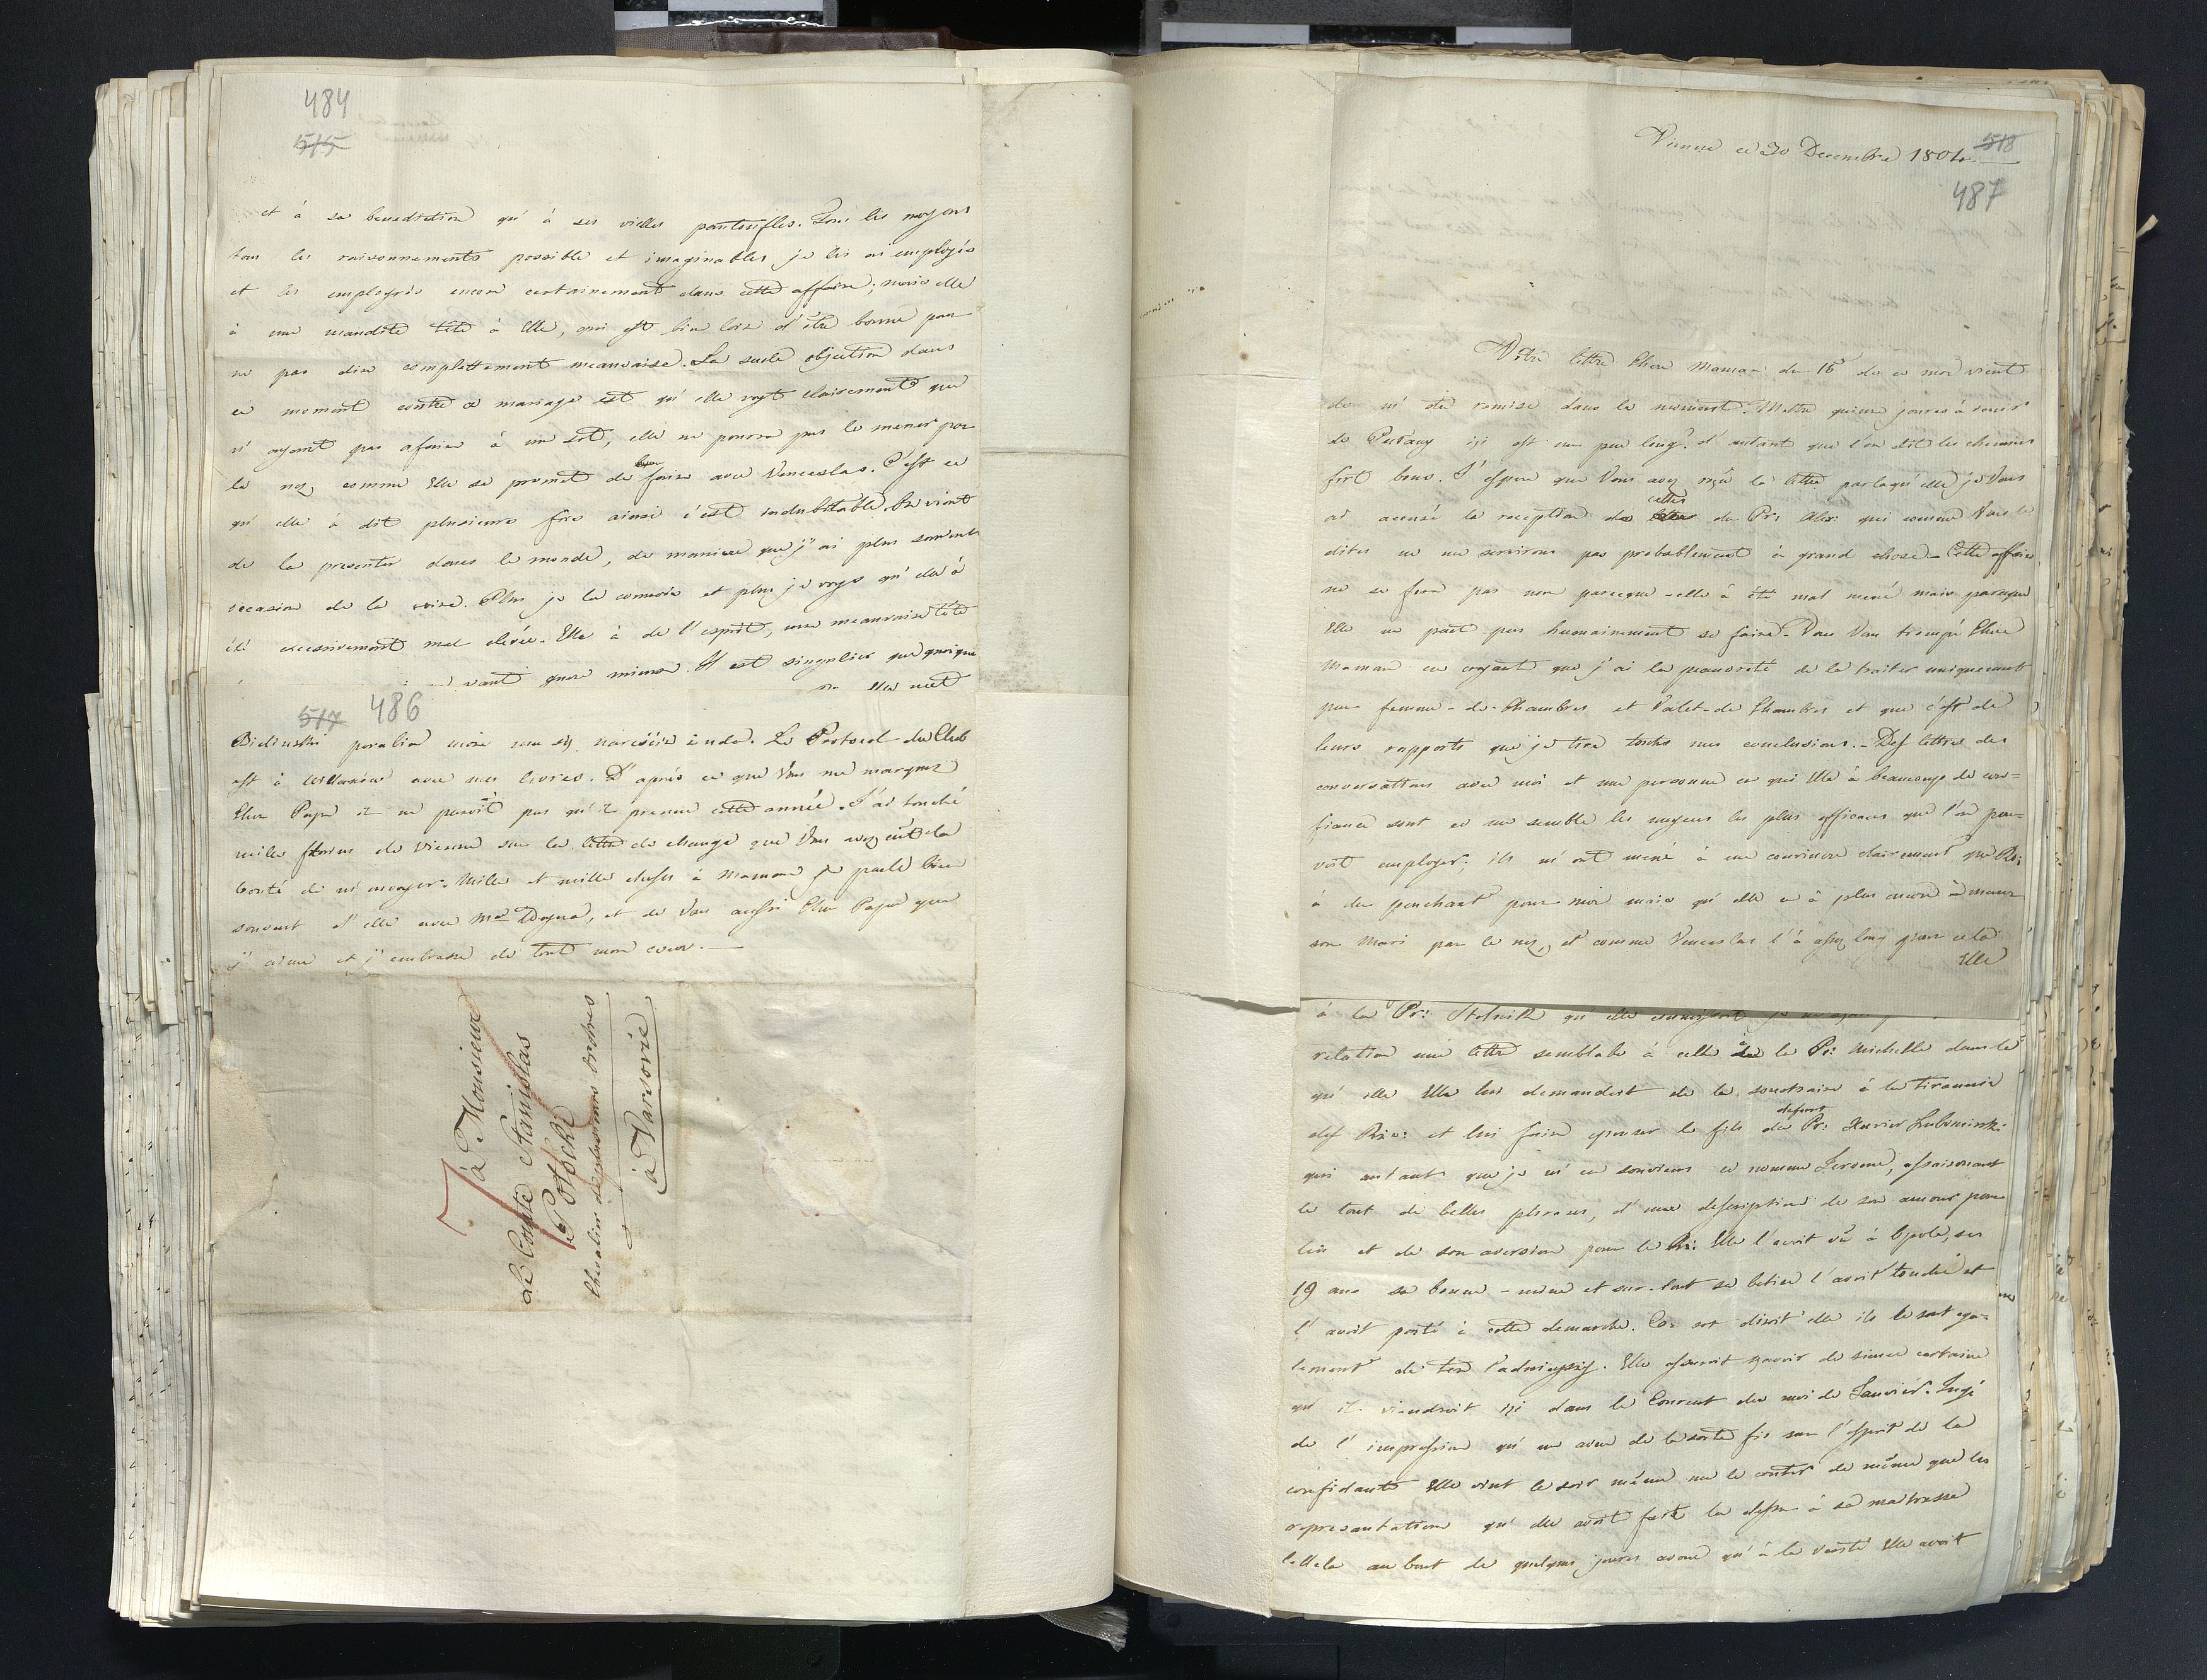 484
515
et à sa benediction qu'à ses vielles pantoufles. Tous les moyens
tous les raisonnements possible et imaginables, je les ai employés
et les employrés encore certainement dans cette affaire; mais elle
à une maudite tête à Elle, qui est bien loin d'être bonne pour
ne pas dire complettement meauvaise. La seule objection dans
ce moment contre ce mariage est qu'elle voyt clairement que
n'ayant pas afaire à un sot, elle ne pourra pas le mener par
le nez, comme Elle se promet de le faire avec Venceslas. C'est ce
qu'elle à dit plusieurs fois ainsi c'est indubitable. On vient
de la presenter dans le monde, de maniere que j'ai plus souvent
occasion de la voire. Plus je la connois et plus je voys qu'elle à
été excessivement mal elevée. Elle à de l'esprit, une meauvaise tête
vaut guere mieux. Il est singulier que quoique
Elle met
517 486
Bielinski
est à Willanów avec mes livres. D'après ce que Vous me marquez
Cher Papa il ne paroit pas qu'il prenne cette année. J'ai touché
mille florins de Vienne sur la lettre de change que Vous avez eût la
bonté de m'envoyer. Mille et mille choses à Maman je parle bien
souvent d'elle avec Md. et de Vous aussi Cher Papa que
j'aime et j'embrasse de tout mon coeur. —
à Monsieur
Le Comte Stanislas
de Potocki
Chevalier de plusieurs ordres
à Varsovie
Vienne ce 30 Decembre 1804.
518
487
Votre lettre Chere Maman du 16 de ce mois vient
de m'être remise dans le moment. Mettre quinze joures à venir
de Pulawy ici est un peu long, d'autant que l'on dit les chemins
fort bons. J'espere que Vous avez reçu la lettre par laqu'elle je Vous
ai accusé la reception de celles du Pr: Alex: qui comme Vous le
dites ne me serviront pas probablement à grand chose — Cette affaire
ne se fera pas non parceque elle à été mal mené mais parceque
Elle ne peut pas humainement se faire. Vous Vous trompé Chere
Maman en croyant que j'ai la de la traiter uniquement
par femme-de-Chambres et Valet-de Chambres et que c'est de
leurs rapports que je tire toutes mes conclusions. — Des lettres des
conversations avec moi et une personne en qui Elle à beaucoup de con=
fiance sont ce me semble les moyens les plus efficaces que l'on pou-
voit employer; ils m'ont mené à me convincre clairement que Ro:
à du penchant pour moi mais qu'elle en à plus encore à mener
son Mari par le nez, et comme Venceslas l'à assez long pour cela
Elle
à la Pr:
relation une lettre semblable à celle de la Pr: Michelle dans la
qu'elle Elle lui demandoit de la soustraire à la tirannie
des et lui faire epouser le fils du defunt Pr: Xavier Lubomirski
qui autant que je m'en souviens ce nomme Jerome, assaisonant
le tout de belles phrases, d'une description de son amour pour
lui et de son aversion pour le Elle l'avoit vû à Opole, ses
19 ans sa bonne-mine et sur-tout sa betise l'avoit touché et
l'avoit porté à cette demarche. disoit elle ils le sont ega=
lement de ten Elle assuroit savoir de sience certaine
qu'il viendroit ici dans le Courent du moi de Janvier. Jugé
de l'impression qu'un aveu de la sorte fis sur l'esprit de la
confidante Elle vint le soir même me le conter de même que les
representations qu'elle avoit fait la dessus à sa maitresse
Celle-la au bout de quelques joures avoué qu'à la verité Elle avoit